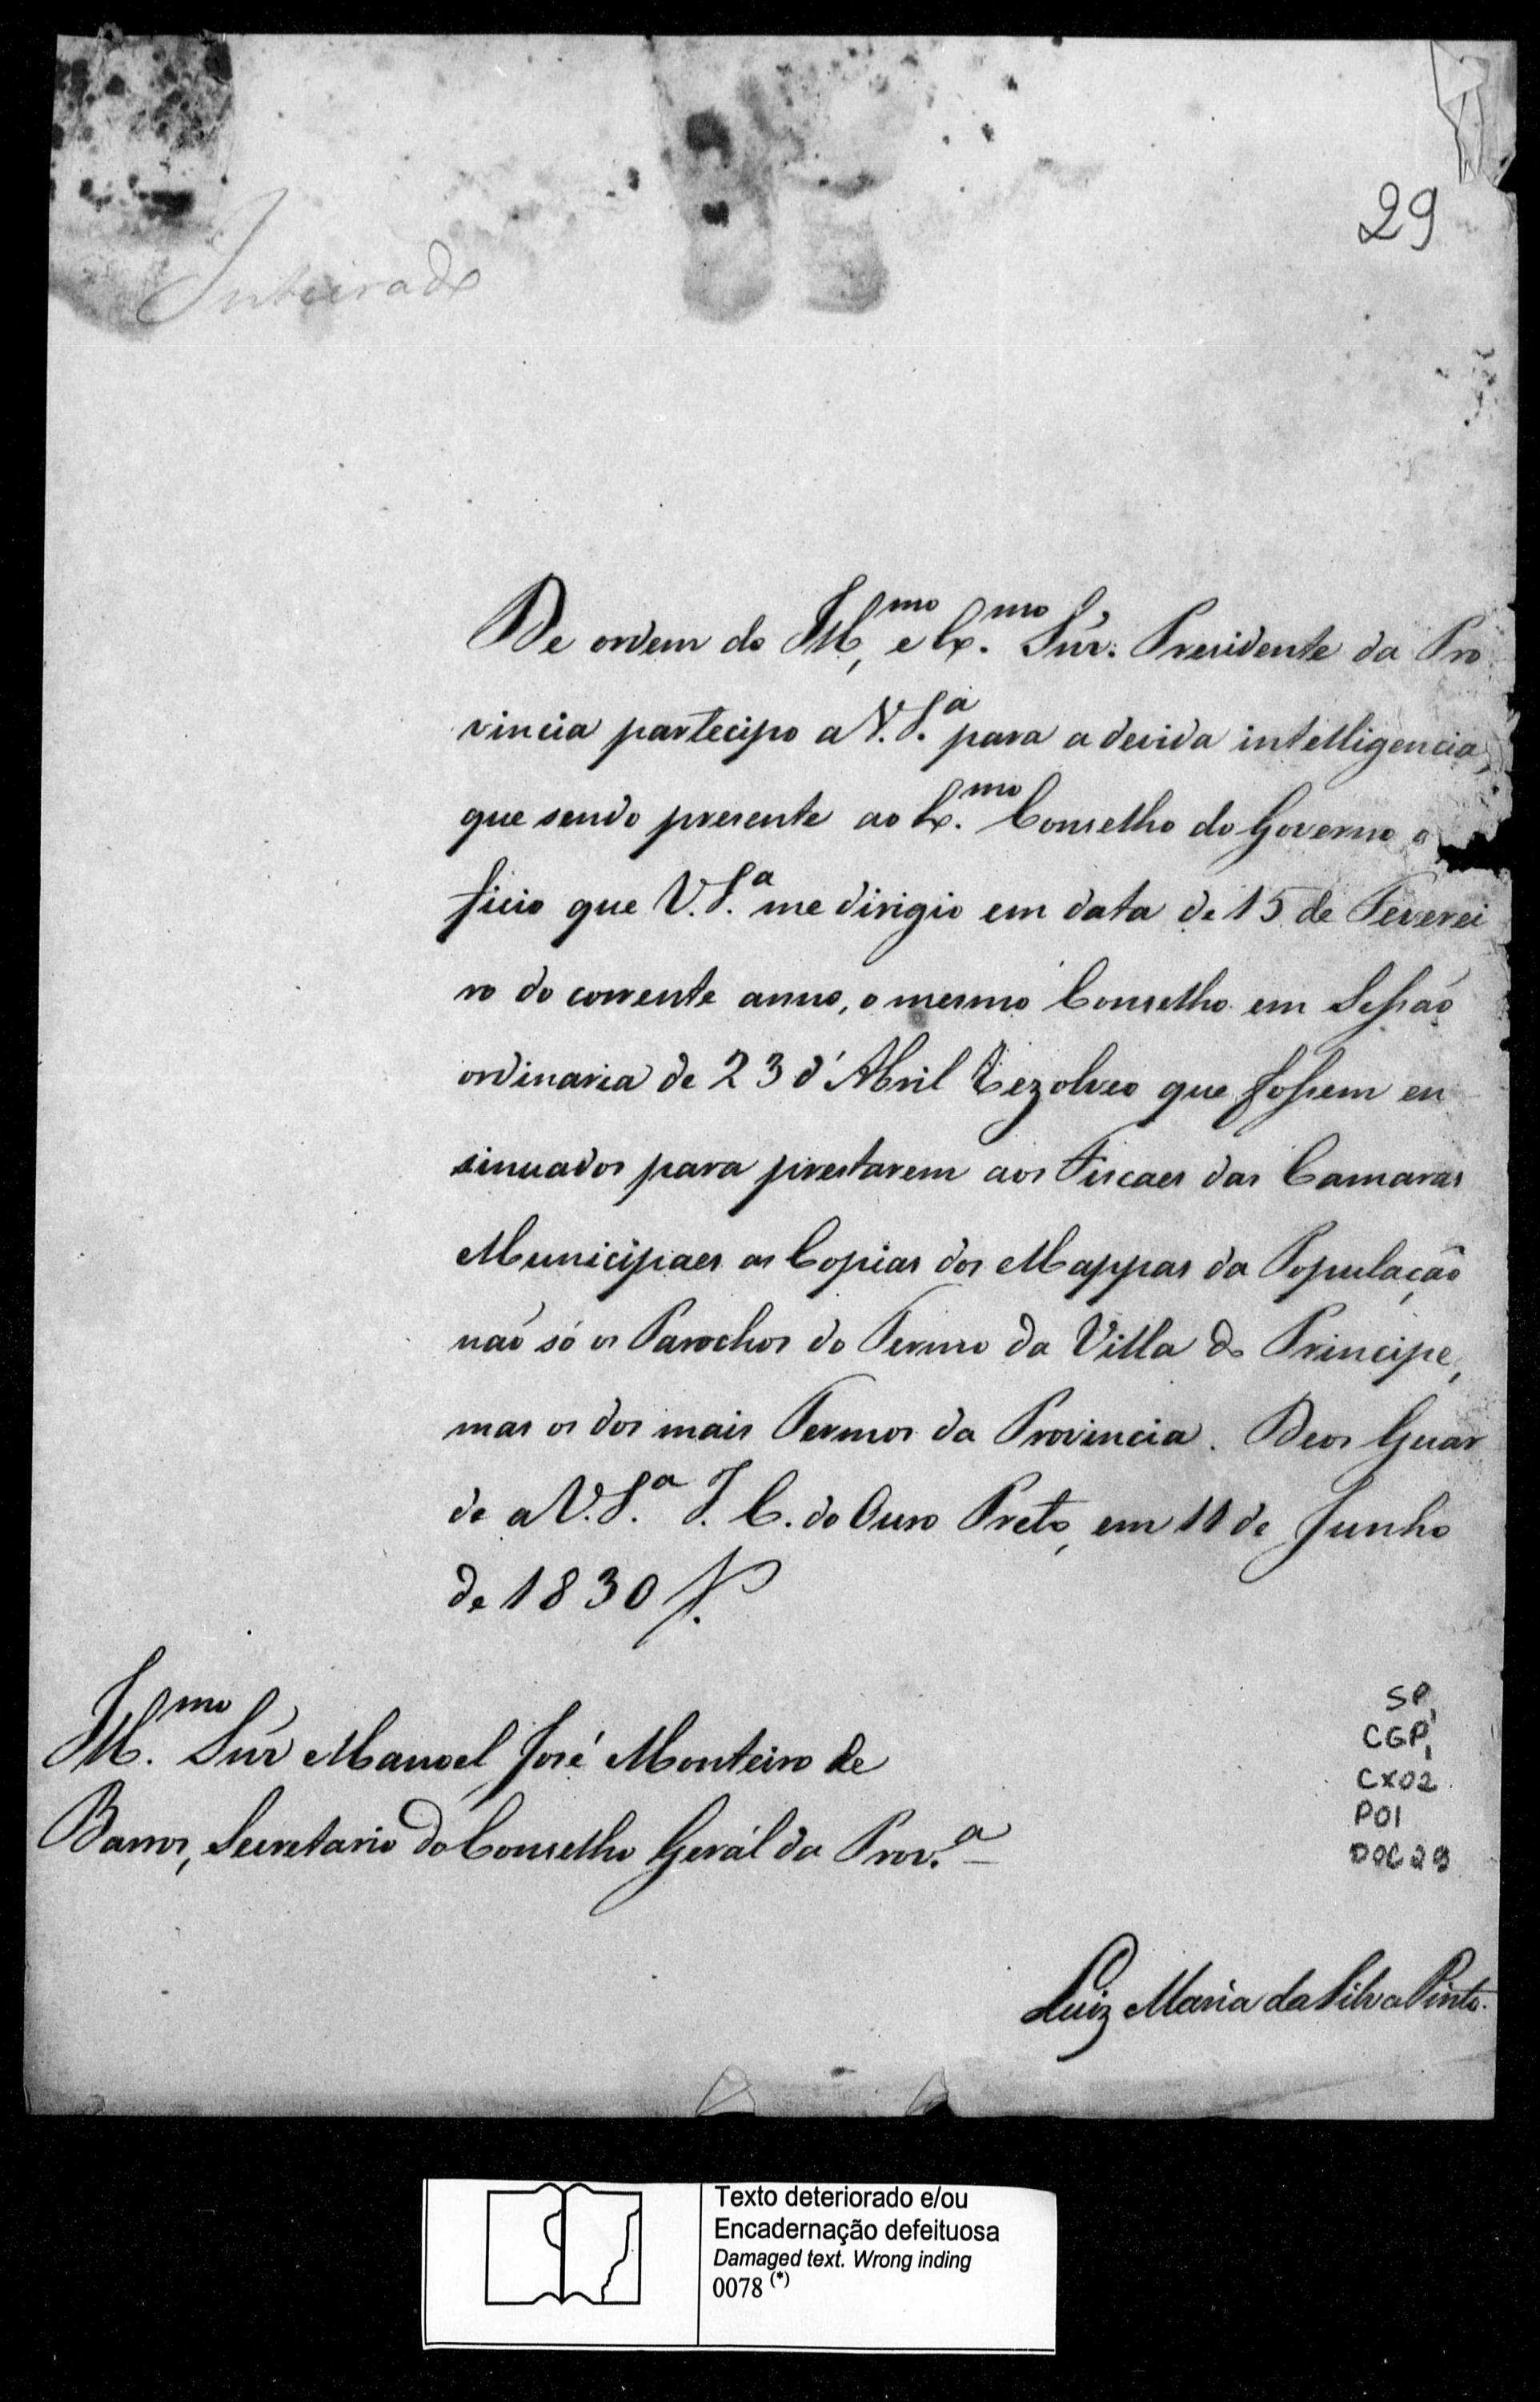 29
Inteirado
De ordem do Ill.mo e Ex.mo Snr. Presidente da Pro
vincia partecipo a V. S.a para a devida intelligencia,
que sendo presente ao Ex.mo Conselho do Governo o
ficio que V. S.a me dirigio em data de 15 de Feverei
ro do corrente anno, o mesmo Conselho em Sessão
ordinaria de 23 d'Abril Rezolveo que fossem en
sinuados para prestarem aos Fiscaes das Camaras
Municipaes as Copias dos Mappas da População
não só os Parochos do Termo da Villa do Principe,
mas os dos mais Termos da Provincia. Deos Guar
de a V. S.a I. C. do Ouro Preto, em 11 de Junho
de 1830
Ill.mo Snr Manoel José Monteiro de
Barros, Secretario do Conselho Gerál da Prov.a
SP,
CGP,
CX02
P01
DOC 29
Luiz Maria da Silva Pinto.
Texto deteriorado e/ou
Encadernação defeituosa
Damaged text. Wrong inding
0078 (*)